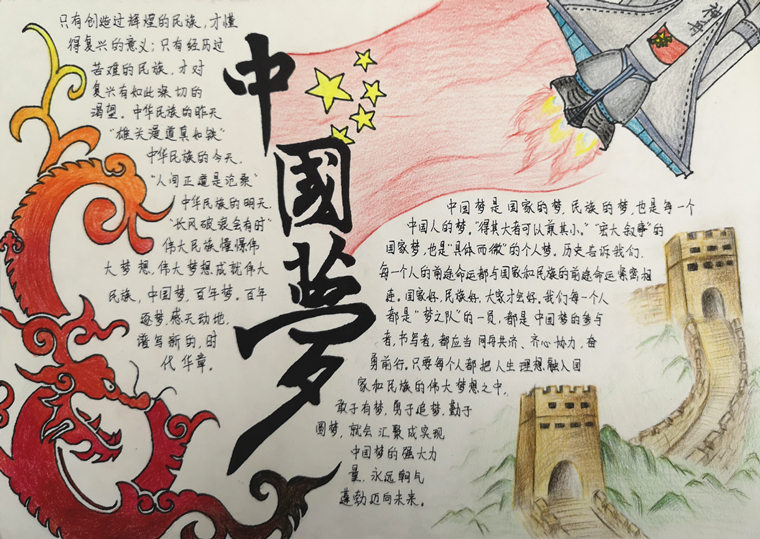 只有创造过辉煌的民族,才懂
得复兴的意义;只有经历过
苦难的民族,才对
复兴有如此深切的
渴望。中华民族的昨天
"雄关漫道真如铁"
中华民族的今天,
"人间正道是沧桑"
中华民族的明天.
"长风破浪会有时"
伟大民族懂得伟
大梦想,伟大梦想成就伟大
民族,中国梦,百年梦。百年
逐梦,感天动地,
谱写新的,时
代华章。
中國夢
中国梦是国家的梦,民族的梦,也是每一个
中国人的梦。"得其大者可以兼其小。""宏大叙事"的
国家梦,也是"具体而微"的个人梦。历史告诉我们,
每一个人的前途命运都与国家和民族的前途命运紧密相
连。国家好,民族好,大家才会好。我们每一个人
都是"梦之队"的一员,都是中国梦的参与
者,书写者,都应当同舟共济、齐心协力,奋
勇前行,只要每个人都把人生理想融入国
家和民族的伟大梦想之中,
敢于有梦,勇于追梦,勤于
圆梦,就会汇聚成实现
中国梦的强大力
量,永远朝气
蓬勃迈向未来。